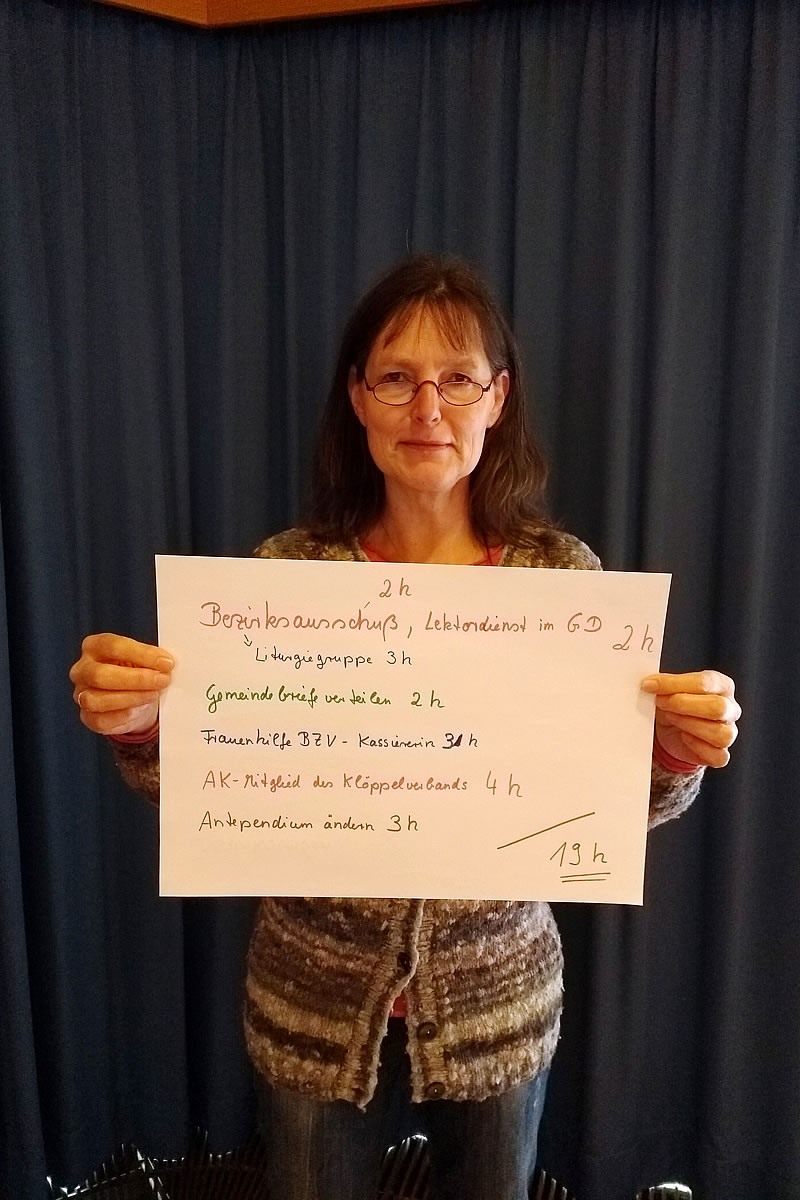 2 h
Bezirksausschuß, Lektordienst im GD 2 h
↳ Liturgiegruppe 3 h
Gemeindebriefe verteilen 2 h
Frauenhilfe BZV - Kassiererin 3 h
AK-Mitglied des Klöppelverbands 4 h
Antependium ändern 3 h
19 h